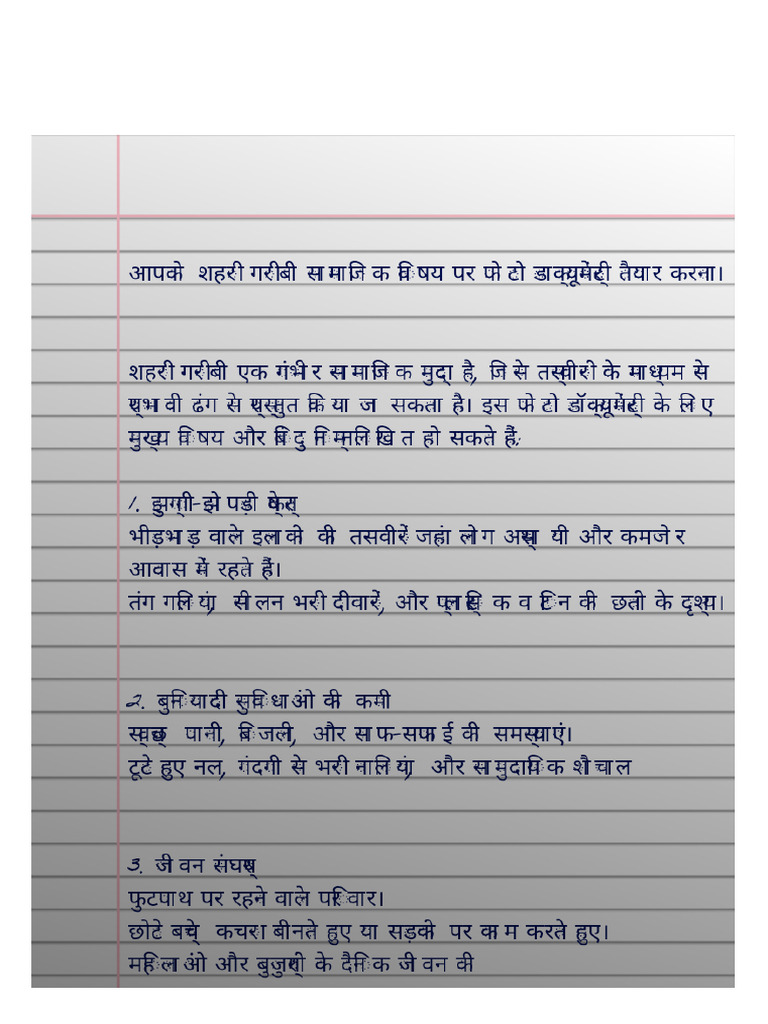 आपको शहरी गरीबी सामाजिक विषय पर फोटो डाक्यूमेंट्री तैयार करना।
शहरी गरीबी एक गंभीर सामाजिक मुद्दा है, जिसे तस्वीरों के माध्यम से
प्रभावी ढंग से प्रस्तुत किया जा सकता है। इस फोटो डॉक्यूमेंट्री के लिए
मुख्य विषय और बिंदु निम्नलिखित हो सकते हैं:
1. झुग्गी-झोपड़ी क्षेत्र
भीड़भाड़ वाले इलाकों की तसवीरें जहां लोग अस्थायी और कमजोर
आवास में रहते हैं।
तंग गलियां, सीलन भरी दीवारें, और प्लास्टिक व टिन की छतों के दृश्य।
2. बुनियादी सुविधाओं की कमी
स्वच्छ पानी, बिजली, और साफ-सफाई की समस्याएं।
टूटे हुए नल, गंदगी से भरी नालियां, और सामुदायिक शौचाल
3. जीवन संघर्ष
फुटपाथ पर रहने वाले परिवार।
छोटे बच्चे कचरा बीनते हुए या सड़कों पर काम करते हुए।
महिलाओं और बुजुर्गों के दैनिक जीवन की